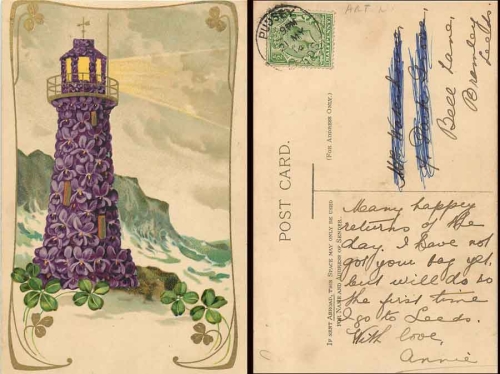 PUDSEY
ART L
Bell Lane,
Bramley
Leeds.
POST CARD.
(FOR ADDRESS ONLY.)
IF SENT ABROAD, THIS SPACE MAY ONLY BE USED
FOR NAME AND ADDRESS OF SENDER.
Many happy
returns of the
day. I have not
got your bag yet,
but will do so
the first time
I go to Leeds.
With love,
Annie